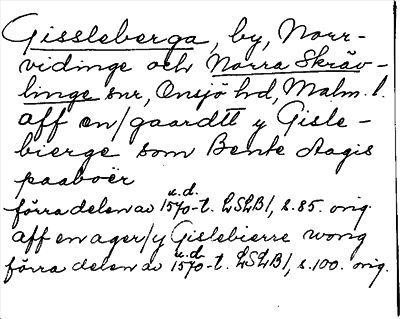 Gissleberga, by, Norr-
vidinge och Norra Skräv-
linge snr, Onsjö hd, Malm. l.
aff en/gaardtt y Gisle-
bierge som Bente Aagis
paaboër
förra delen av u.d. 1570-t. LSLB1, s.85. orig.
aff en ager/y Gislebierre wong
förra delen av u.d. 1570-t. LSLB1, s.100. orig.